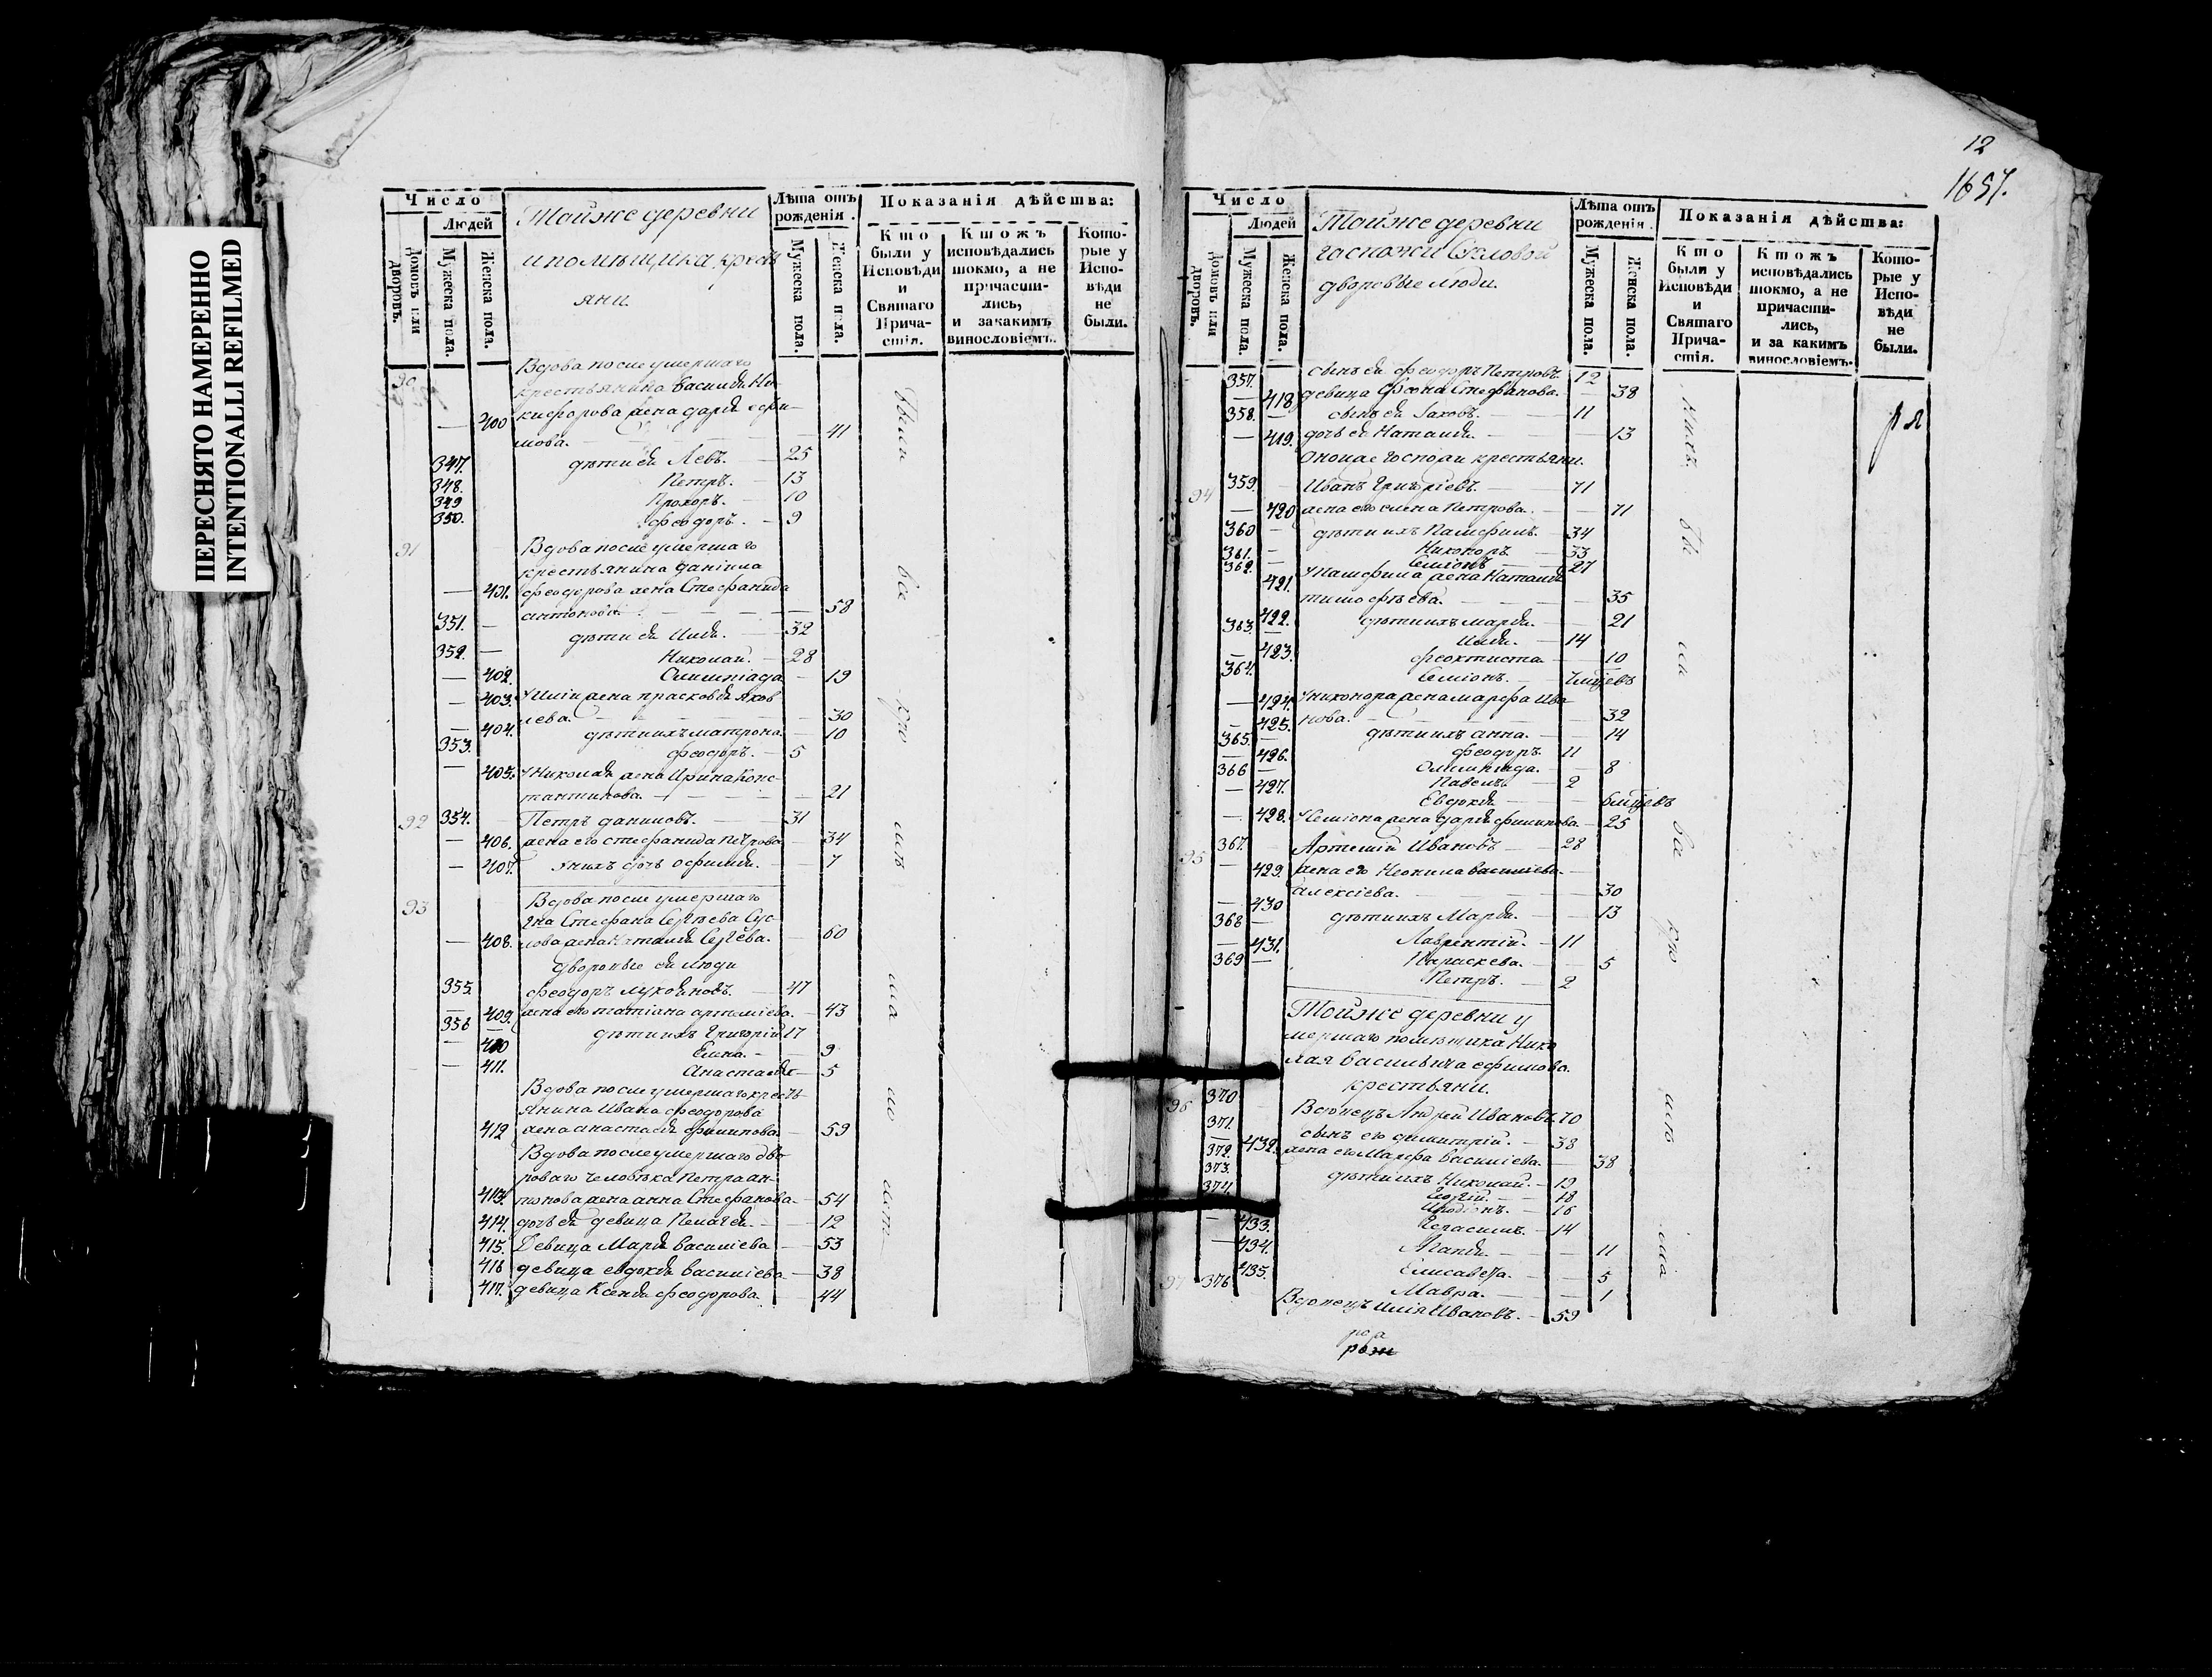 ПЕРЕСНЯТО НАМЕРЕННО
INTENTIONALLI REFILMED
Число
Людей
Домовъ или дворовъ.
Мужеска пола.
Женска пола.
Тойже деревни
ипомѣщика крестъ
яни.
Лѣта отъ рожденія.
Мужеска пола.
Женска пола.
Показанія дѣйства:
Кто были у Исповѣди и Святаго Причастія.
Ктожъ исповѣдались токмо, а не причастились, и закакимъ винословіемъ.
Которые у Исповѣди не были.
90
Вдова после умершаго
крестьянина василия Ни-
400 кифорова жена дарья ефи-
мова. 41
347. дѣти ея Левъ. 25
348. Петръ. 13
349 Прохоръ. 10
350. феодоръ. 9
91 Вдова после умершаго
крестьянина даніила
401. феодорова жена Стефанида
антонова 58
351. дѣти ея Илья. 32
352. Николай. 28
402. Олимпіада 19
403. Уиліи жена прасковья Яков
лева. 30
404. дѣтиихъ матрона. 10
353. феодоръ. 5
405. Униколая жена Ирина Конс-
тантинова. 21
92 354. Петръ даниловъ. 31
406. жена его стефанида петрова 34
407. Унихъ дочь офимия. 7
93 Вдова после умершаго
Гна Стефана Сергѣева Сус
408. лова жена наталия Сергѣева. 60
Дворовые ея люди
355. феодоръ Лукояновъ. 47
409. жена его татіана артеміева. 43
356 дѣтиихъ Григорій 17
410 Елена. 9
411. Анастасья 5
Вдова после умершаго кресть
янина Ивана феодорова
412 жена анастасия филипова. 59
Вдова послеумершаго дво
роваго человѣка Петра ан-
413. тонова жена анна Стефанова 54
414. дочь ея девица Пелагея. 12
415. Девица Марья василіева 53
416 девица евдокия василіева 38
417. девица Ксения феодорова. 44
Были
все
кро
мѣ
ма
ло
лѣт
12
1657.
Число
Людей
Домовъ или дворовъ.
Мужеска пола.
Женска пола.
Тойже деревни
госпожи Сусловой
дворовые люди.
Лѣта отъ рожденія.
Мужеска пола.
Женска пола.
Показанія дѣйства:
Кто были у Исповѣди и Святаго Причастія.
Ктожъ исповѣдались токмо, а не причастились, и за какимъ винословіемъ.
Которые у Исповѣди не были.
357. сынъ ея феодоръ Петровъ. 12
418 девица Стефанова. 38
358. сынъ ея Іаковъ. 11
419. дочь ея Наталия. 13
Оной же Госпожи крестьяни.
94 359. Иванъ Григоріевъ. 71
420 жена его елена Петрова. 71
360 дѣти ихъ Памфилъ. 34
361. Никоноръ. 33
362. Семіонъ 27
421. Упамфила жена Наталия
тимофѣева. 35
422. дѣтиихъ марья. 21
363. Илья. 14
423. феоктиста. 10
364. Семіонъ.
424. Униконора жена марфа Ива
нова. 32
425. дѣтиихъ анна. 14
365. феодоръ 11
426. Олимпиада. 8
366 Павелъ. 2
427. Евдокия
428. Усеміона жена дарья филипова. 25
95 367. Артемій Ивановъ 28
429. жена его Неонила василіева
алексіева. 30
430 дѣтиихъ Марья. 13
368 Лаврентій. 11
431. Параскева. 5
369 Петръ. 2
Тойже деревни у
мершаго помѣщика Нико
лая васильича ефимова.
крестьяни.
96 370 Вдовецъ Андрей Ивановъ. 70
371. сынъ его димитрій. 38
432. жена его Марфа василіева. 38
372. дѣтиихъ Николай. 19
373. 18
374. 16
Герасимъ. 14
433. Агапия. 11
434. Елисавета. 5
435. Мавра. 1
97 376 Вдовецъ Илія Ивановъ. 59
нихъ.
бы
ли
все
кро
мѣ
ма